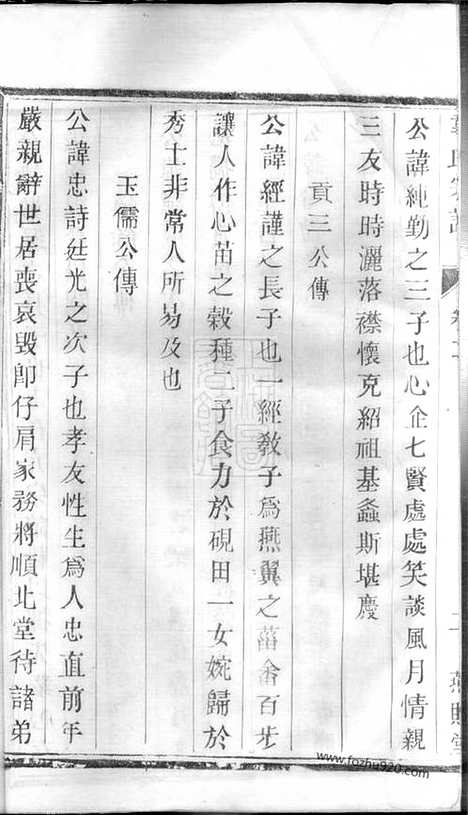 公諱純勤之三子也心企七賢處處笑談風月情親
三友時時灑落襟懷克紹祖基螽斯堪慶
貢三公傳
公諱經謹之長子也一經教子為燕翼之菑畬百步
讓人作心苗之穀種二子食力於硯田一女婉歸於
秀士非常人所易及也
玉儒公傳
公諱忠詩廷光之次子也孝友性生為人忠直前年
嚴親辭世居喪哀毀卽仔肩家務將順北堂待諸弟
www.fozhu920.com